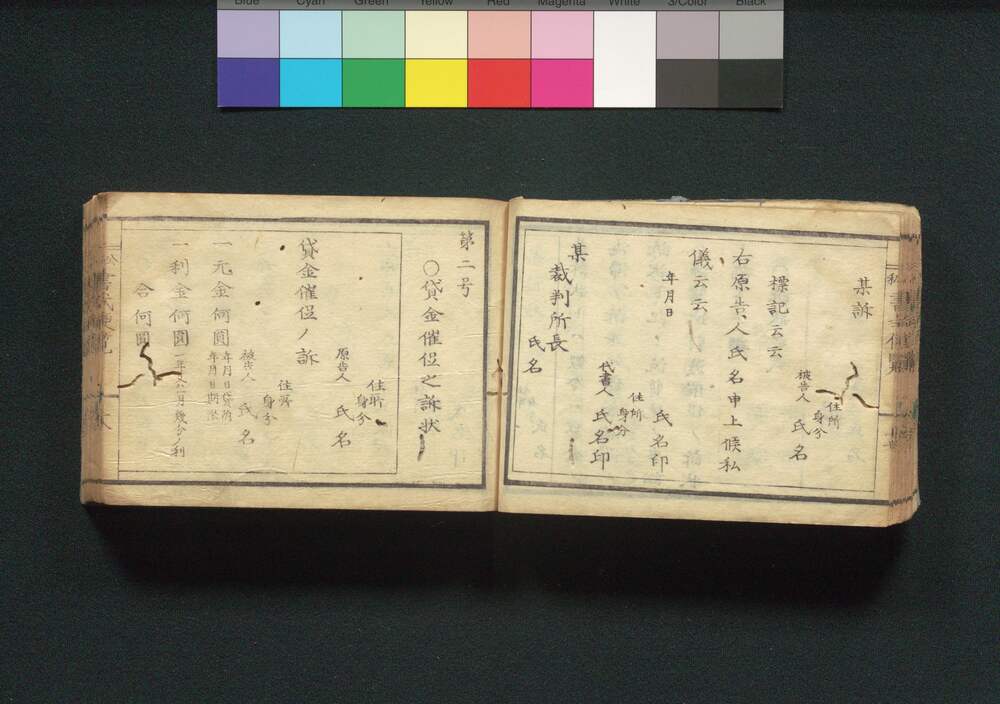 Blue Cyan Green Yellow Red Magenta White 3/Color Black
某訴
住所
身分
被告人 氏名
標記云云
右原告人氏名申上候私
儀云云
年月日
氏名印
住所
身分
代書人 氏名印
某裁判所長
氏名
第二号
○貸金催促之訴状
貸金催促ノ訴
住所
身分
原告人 氏名
住所
身分
被告人 氏名
一元金何圓
年月日貸附
年月日期限
一利金何圓
合何圓